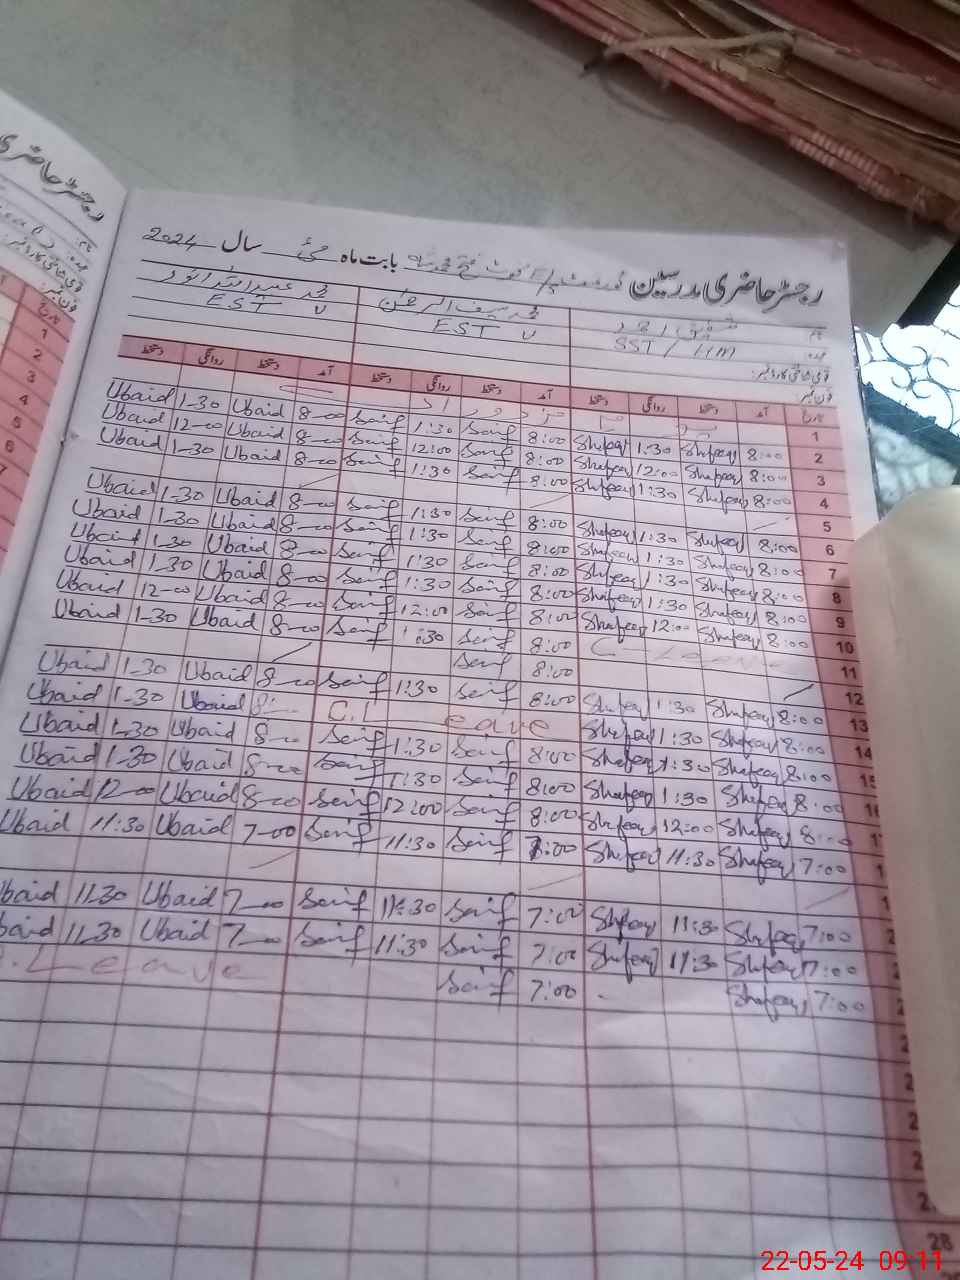 رجسٹر حاضری
رجسٹر حاضری مدرسین بابت ماہ مئی سال 2024
نام:
عہدہ: SST / HM EST EST
قومی شناختی کارڈ نمبر:
فون نمبر:
تاریخ آمد دستخط روانگی دستخط آمد دستخط روانگی دستخط آمد دستخط روانگی دستخط
1
2 8:00 Shafeeq 1:30 Shafeeq 8:00 Saif 1:30 Saif 8-00 Ubaid 1-30 Ubaid
3 8:00 Shafeeq 12:00 Shafeeq 8:00 Saif 12:00 Saif 8-00 Ubaid 12-00 Ubaid
4 8:00 Shafeeq 1:30 Shafeeq 8:00 Saif 1:30 Saif 8-00 Ubaid 1-30 Ubaid
5
6 8:00 Shafeeq 1:30 Shafeeq 8:00 Saif 1:30 Saif 8-00 Ubaid 1-30 Ubaid
7 8:00 Shafeeq 1:30 Shafeeq 8:00 Saif 1:30 Saif 8-00 Ubaid 1-30 Ubaid
8 8:00 Shafeeq 1:30 Shafeeq 8:00 Saif 1:30 Saif 8-00 Ubaid 1-30 Ubaid
9 8:00 Shafeeq 1:30 Shafeeq 8:00 Saif 1:30 Saif 8-00 Ubaid 1-30 Ubaid
10 8:00 Shafeeq 12:00 Shafeeq 8:00 Saif 12:00 Saif 8-00 Ubaid 12-00 Ubaid
11 C-Leave 8:00 Saif 1:30 Saif 8-00 Ubaid 1-30 Ubaid
12 8:00 Saif
13 8:00 Shafeeq 1:30 Shafeeq 8:00 Saif 1:30 Saif 8-00 Ubaid 1-30 Ubaid
14 8:00 Shafeeq 1:30 Shafeeq C.Leave 8: Ubaid 1-30 Ubaid
15 8:00 Shafeeq 1:30 Shafeeq 8:00 Saif 1:30 Saif 8-00 Ubaid 1-30 Ubaid
16 8:00 Shafeeq 1:30 Shafeeq 8:00 Saif 1:30 Saif 8-00 Ubaid 1-30 Ubaid
8:00 Shafeeq 12:00 Shafeeq 8:00 Saif 12:00 Saif 8-00 Ubaid 12-00 Ubaid
7:00 Shafeeq 11:30 Shafeeq 7:00 Saif 11:30 Saif 7-00 Ubaid 11:30 Ubaid
7:00 Shafeeq 11:30 Shafeeq 7:00 Saif 11:30 Saif 7-00 Ubaid 11-30 Ubaid
7:00 Shafeeq 11:30 Shafeeq 7:00 Saif 11:30 Saif 7-00 Ubaid 11-30 Ubaid
7:00 Shafeeq 7:00 Saif Leave
28
22-05-24 09:11